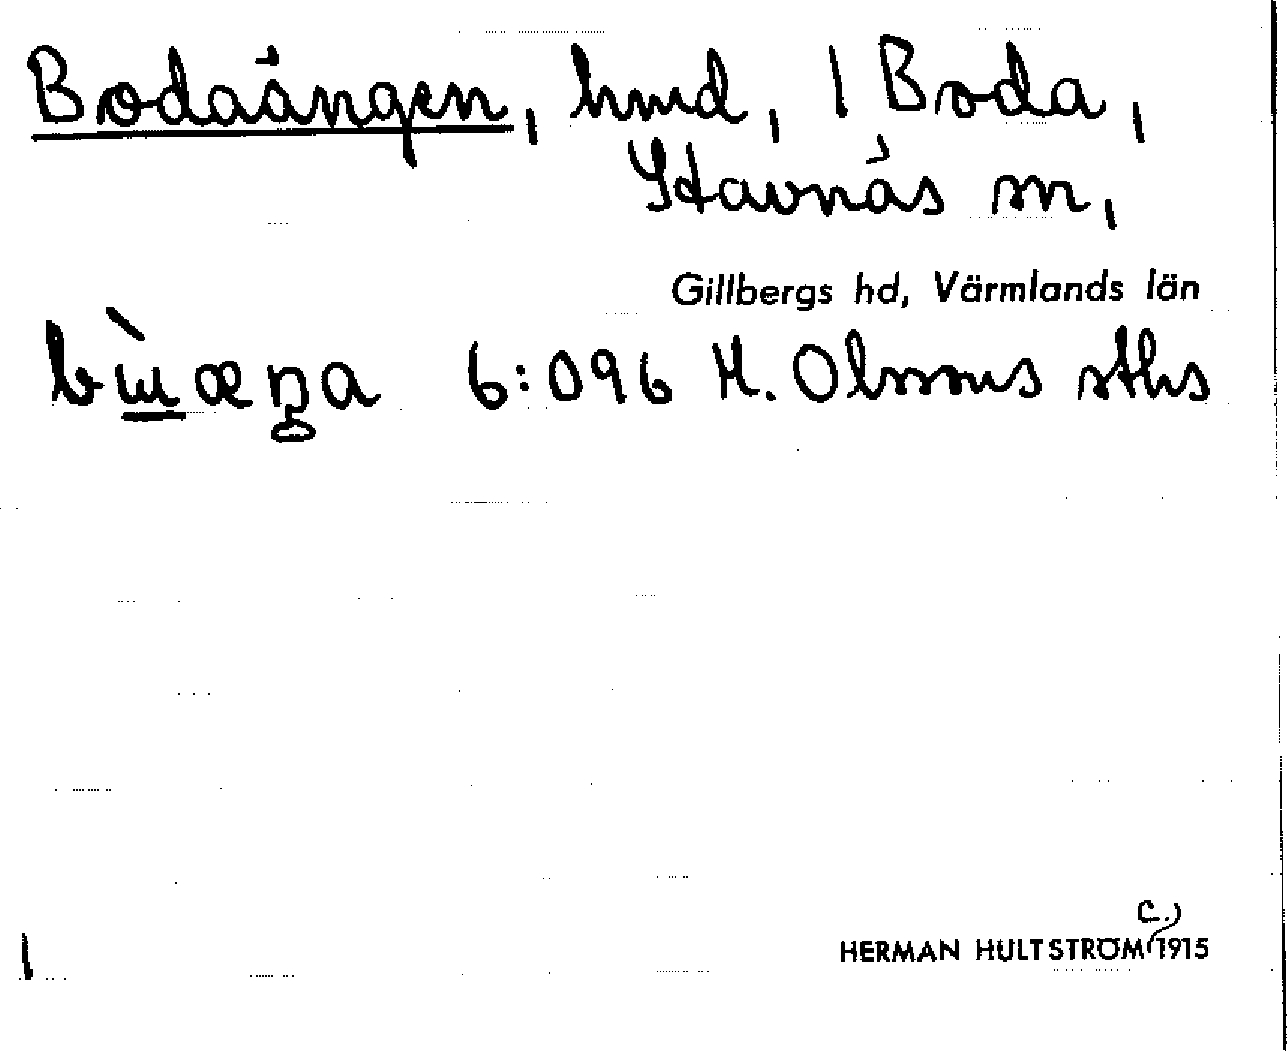 Bodaängen, hmd, / Boda,
Stavnäs sn,
Gillbergs hd, Värmlands län
6:096 H. Olssons sths
C.)
HERMAN HULTSTRÖM 1915